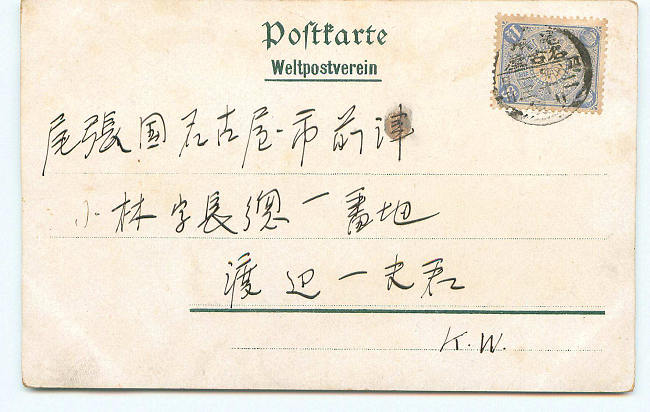 Postkarte
Weltpostverein
尾張国名古屋市前津
小林字長德一番地
渡辺一夫君
K.W.